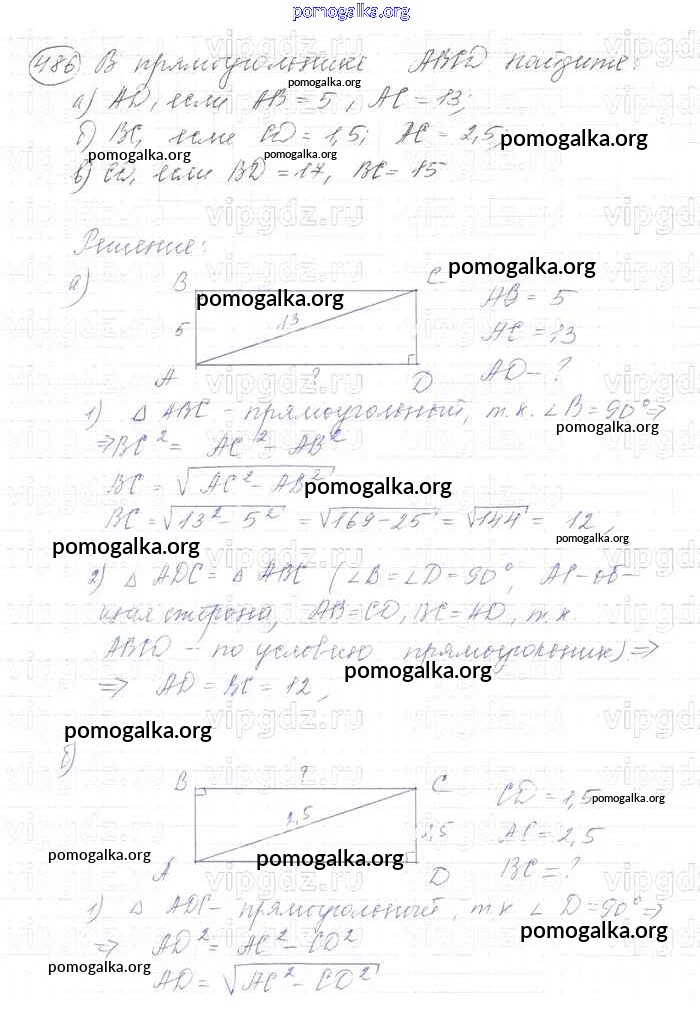 pomogalka.org
486 В прямоугольнике ABCD найдите:
pomogalka.org
а) AD, если AB = 5, AC = 13;
б) BC, если CD = 1,5; AC = 2,5
pomogalka.org
pomogalka.org pomogalka.org
в) CD, если BD = 17, BC = 15
vipgdz.ru
Решение:
а) B C
pomogalka.org
pomogalka.org
AB = 5
5 13 AC = 13
A ? D AD - ?
1) △ ABC - прямоугольный, т.к. ∠B = 90° ⇒
pomogalka.org
⇒ BC² = AC² - AB²
BC = √AC² - AB²
pomogalka.org
BC = √13² - 5² = √169 - 25 = √144 = 12,
pomogalka.org
pomogalka.org
2) △ ADC = △ ABC (∠B = ∠D = 90°, AC - об-
щая сторона, AB = CD, BC = AD, т.к.
ABCD - по условию прямоугольник) ⇒
pomogalka.org
⇒ AD = BC = 12,
pomogalka.org
б)
B ? C
CD = 1,5
pomogalka.org
2,5 1,5 AC = 2,5
pomogalka.org
pomogalka.org
A D BC = ?
1) △ ADC - прямоугольный, т.к ∠ D = 90° ⇒
pomogalka.org
⇒ AD² = AC² - CD²
pomogalka.org
AD = √AC² - CD²